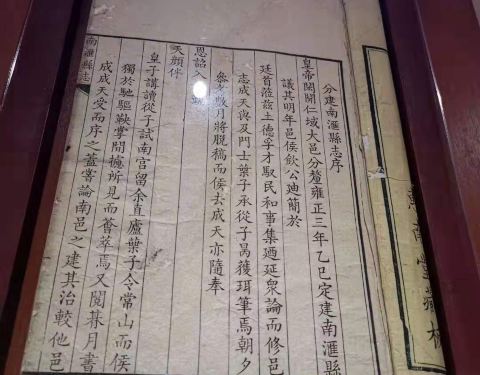 分建南滙縣志序
皇帝闢開仁域大邑分釐雍正三年乙巳定建南滙縣
議其明年邑侯欽公迪簡於
廷首蒞兹土德孚才馭民和事集廼延衆論而修邑
志成天與及門士葉子承從子昺獲珥筆焉朝夕
叅 數月將脫稿而侯去成天亦隨奉
恩詔入
天顏伴
皇子講讀從子試南宫留余直廬葉子令常山而侯
獨於馳驅鞅掌間攄所見而薈萃焉又閱朞月書
成成天受而序之蓋嘗論南邑之建其治較他邑
南滙縣志